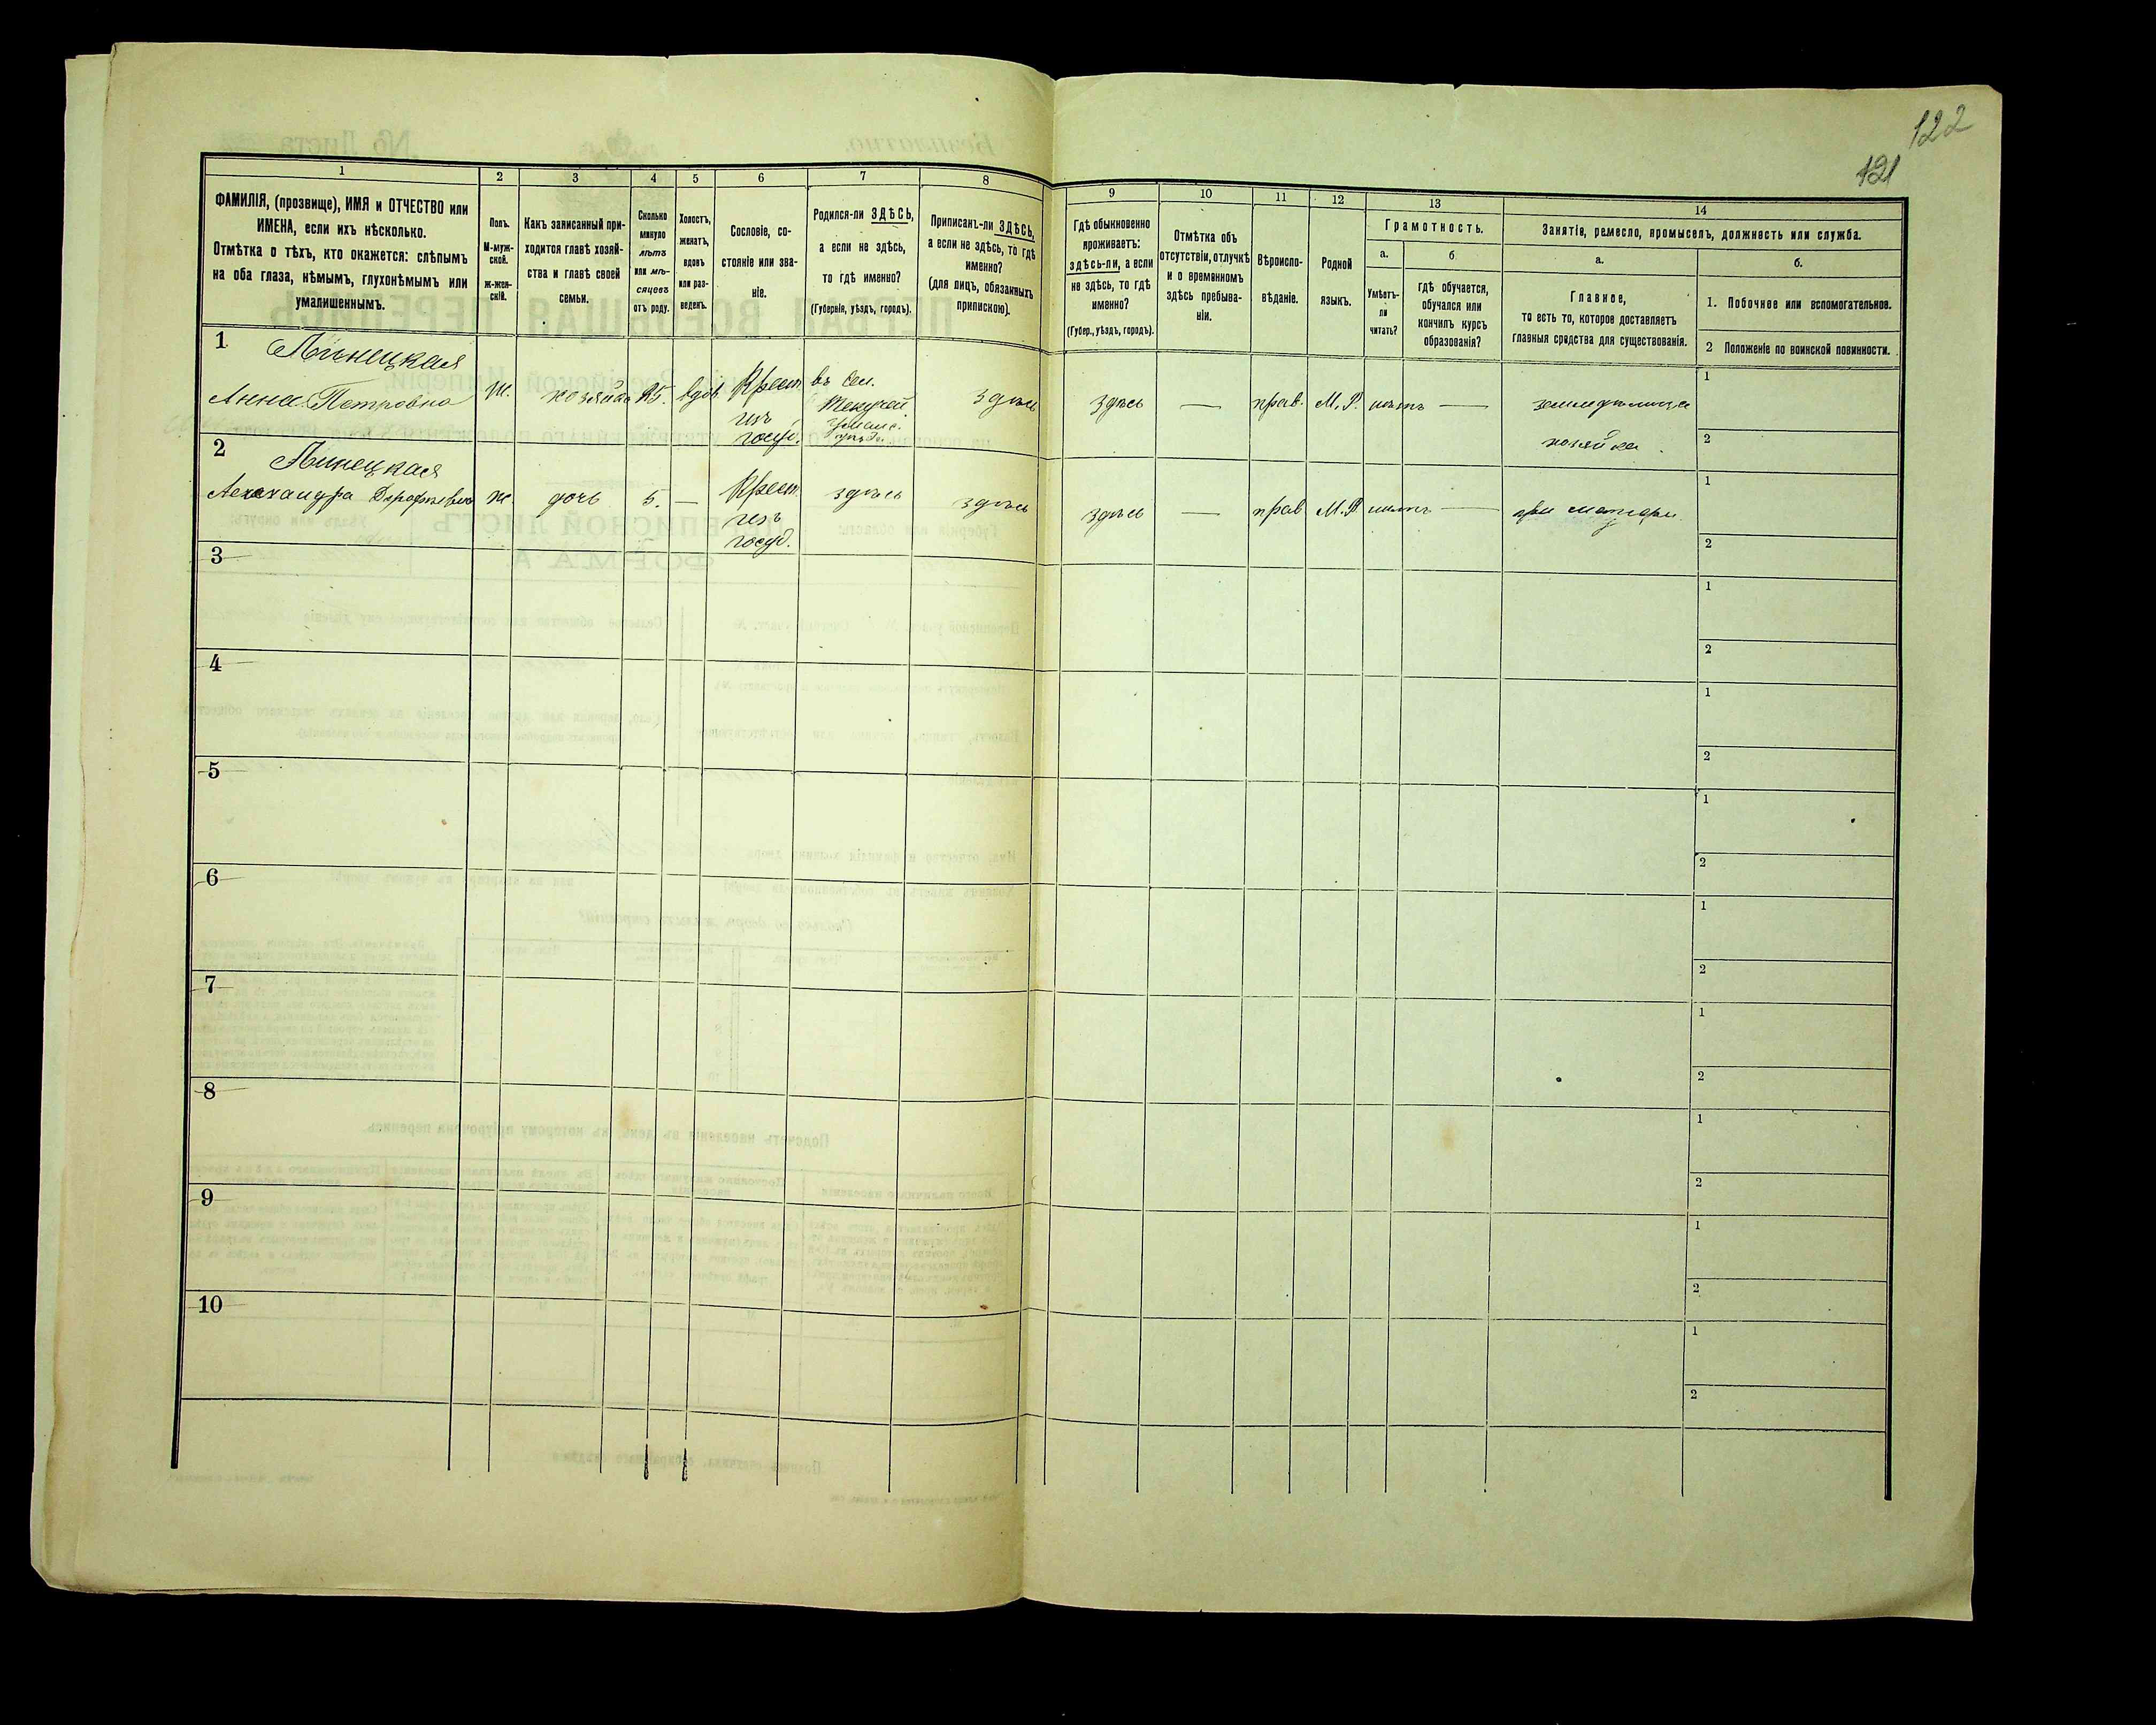 122
121
1
2
3
4
5
6
7
8
9
10
11
12
13
14
ФАМИЛІЯ, (прозвище), ИМЯ и ОТЧЕСТВО или
ИМЕНА, если ихъ нѣсколько.
Отмѣтка о тѣхъ, кто окажется: слѣпымъ
на оба глаза, нѣмымъ, глухонѣмымъ или
умалишеннымъ.
Полъ.
М-муж-
ской.
ж-жен-
скій.
Какъ записанный при-
ходится главѣ хозяй-
ства и главѣ своей
семьи.
Сколько
минуло
лѣтъ
или мѣ-
сяцевъ
отъ роду.
Холостъ,
женатъ,
вдовъ
или раз-
веденъ.
Сословіе, со-
стояніе или зва-
ніе.
Родился-ли ЗДѢСЬ,
а если не здѣсь,
то гдѣ именно?
(Губернія, уѣздъ, городъ).
Приписанъ-ли ЗДѢСЬ,
а если не здѣсь, то гдѣ
именно?
(для лицъ, обязанныхъ
припискою).
Гдѣ обыкновенно
проживаетъ:
здѣсь-ли, а если
не здѣсь, то гдѣ
именно?
(Губер., уѣздъ, городъ).
Отмѣтка объ
отсутствіи, отлучкѣ
и о временномъ
здѣсь пребыва-
ніи.
Вѣроиспо-
вѣданіе.
Родной
языкъ.
Грамотность.
а.
Умѣетъ-
ли
читать?
б.
гдѣ обучается,
обучался или
кончилъ курсъ
образованія?
Занятія, ремесло, промыселъ, должность или служба.
а.
Главное,
то есть то, которое доставляетъ
главныя средства для существованія.
б.
1. Побочное или вспомогательное.
2 Положеніе по воинской повинности.
1
Линецкая
Анна Петровна
Ж.
хозяйка
25.
вдов.
Крест.
изъ
госуд.
въ сел.
Текучей
Уманс.
уѣзда
здѣсь
здѣсь
—
прав.
М. Р.
нѣтъ
—
земледѣлица
хозяйка.
1
2
2
Линецкая
Александра
ж
дочь
5.
—
Крест.
изъ
госуд.
здѣсь
здѣсь
здѣсь
—
прав
М. Р
нѣтъ
—
при матери
1
2
3
1
2
4
1
2
5
1
2
6
1
2
7
1
2
8
1
2
9
1
2
10
1
2